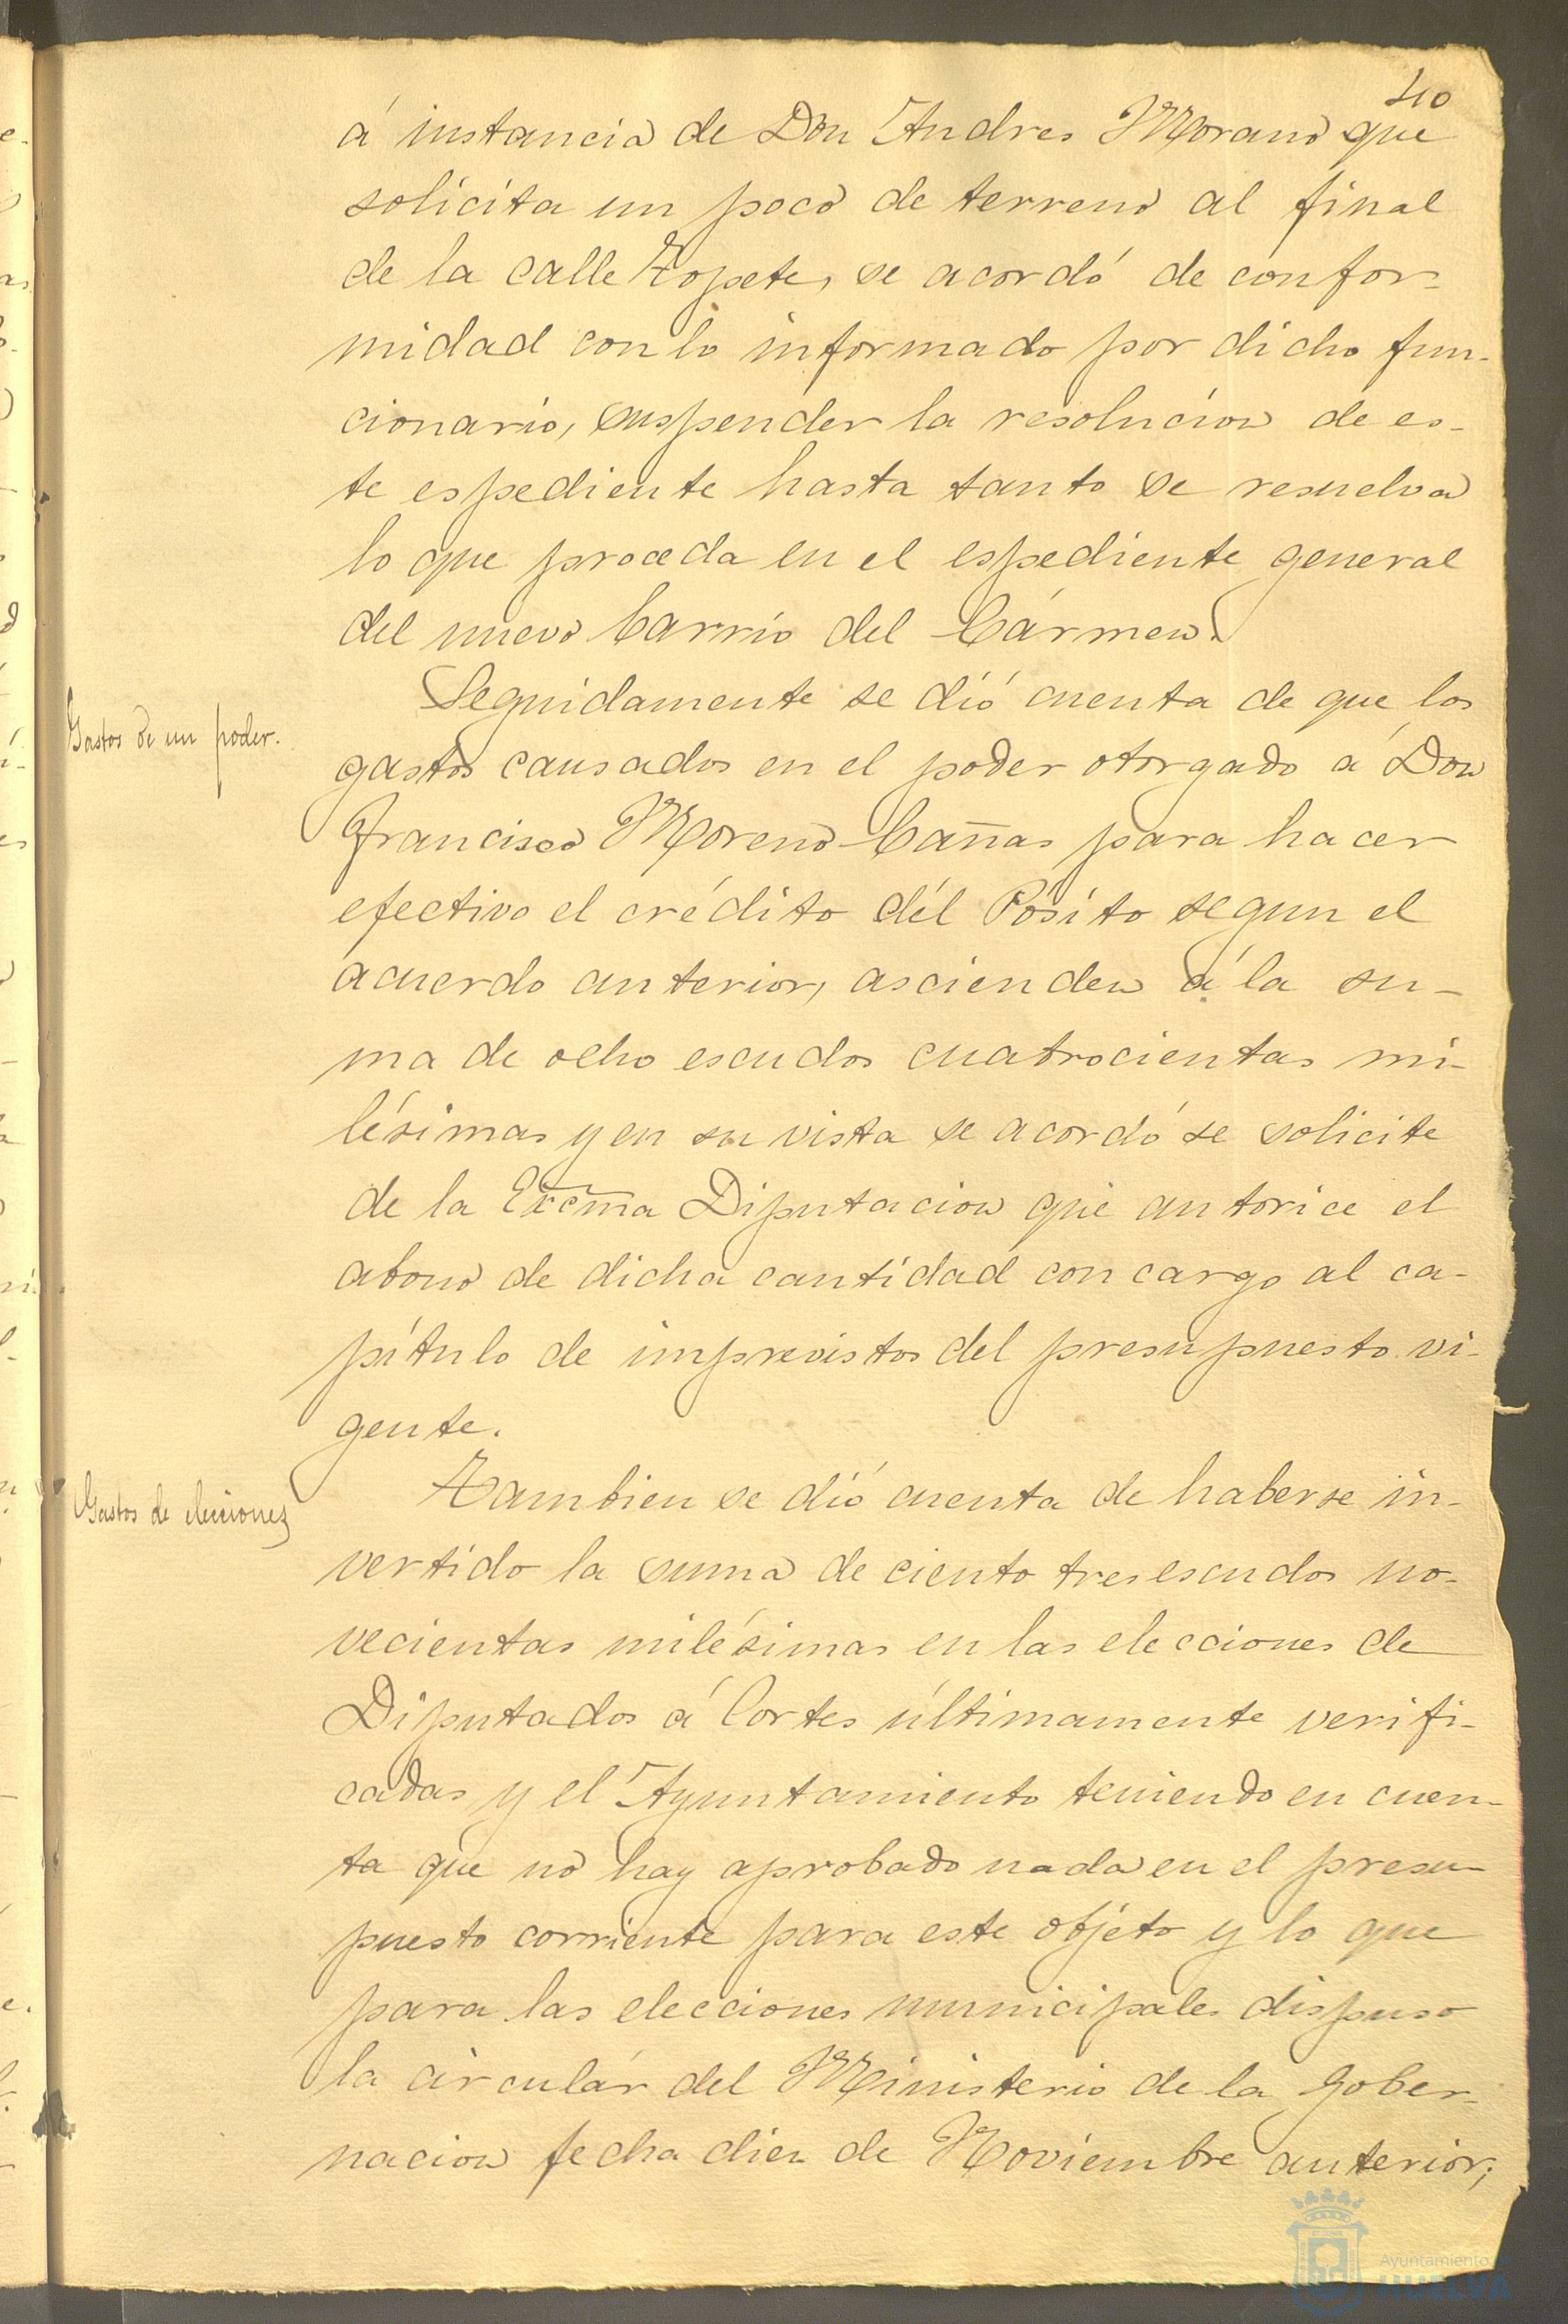 40
á instancia de Don Andres Morano que
solicita un poco de terreno al final
de la calle Topete, se acordó de confor-
midad con lo informado por dicho fun-
cionario, suspender la resolucion de es-
te espediente hasta tanto se resuelva
lo que proceda en el espediente general
del nuevo barrio del Cármen.
Gastos de un poder.
Seguidamente se dió cuenta de que los
gastos causados en el poder otorgado á Don
Francisco Moreno Cañas para hacer
efectivo el crédito dél Pósito segun el
acuerdo anterior, ascienden á la su-
ma de ocho escudos cuatrocientas mi-
lésimas y en su vista se acordó se solicite
de la Excma Diputacion que autorice el
abono de dicha cantidad con cargo al ca-
pítulo de imprevistos del presupuesto vi-
gente.
Gastos de elecciones
Tambien se dió cuenta de haberse in-
vertido la suma de ciento tres escudos no-
vecientas milésimas en las elecciones de
Diputados á Cortes últimamente verifi-
cadas y el Ayuntamiento teniendo en cuen-
ta que no hay aprobado nada en el presu-
puesto corriente para este objeto y lo que
para las elecciones municipales dispuso
la circulár del Ministerio de la Gober-
nacion fecha diez de Noviembre anterior;
Ayuntamiento
HUELVA